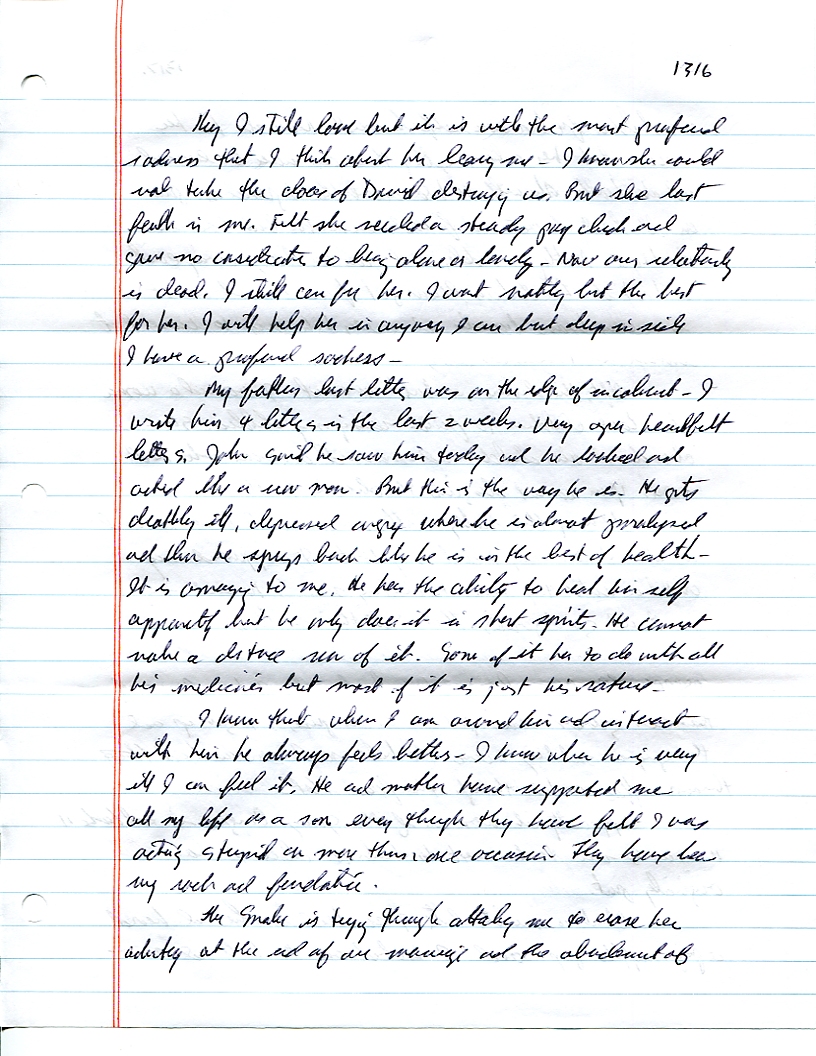 1316
Hey I still love but it is with the most profound
sadness that I think about her leaving me - I know she could
not take the chaos of David destroying us. But she lost
faith in me. Felt she needed a steady pay check and
gave no consideration to being alone or lonely - Now our relationship
is dead. I still care for her. I want nothing but the best
for her. I will help her in anyway I can but deep inside
I have a profound sadness -
My fathers last letter was on the edge of incoherent - I
wrote him 4 letters in the last 2 weeks. Very open heartfelt
letters. John said he saw him today and he looked and
acted like a new man. But this is the way he is. He gets
deathly ill, depressed angry where he is almost paralyzed
and then he springs back like he is in the best of health -
It is amazing to me. He has the ability to heal himself
apparently but he only does it in short spirits. He cannot
make a distance run of it. Some of it has to do with all
his medicines but most of it is just his nature -
I know that when I am around him and interact
with him he always feels better - I know when he is very
ill I can feel it. He and mother have supported me
all my life as a son even though they have felt I was
acting stupid on more than one occasion They have been
my rock and foundation.
The Snake is trying through attacking me to erase her
adultery at the end of our marriage and the abandonment of